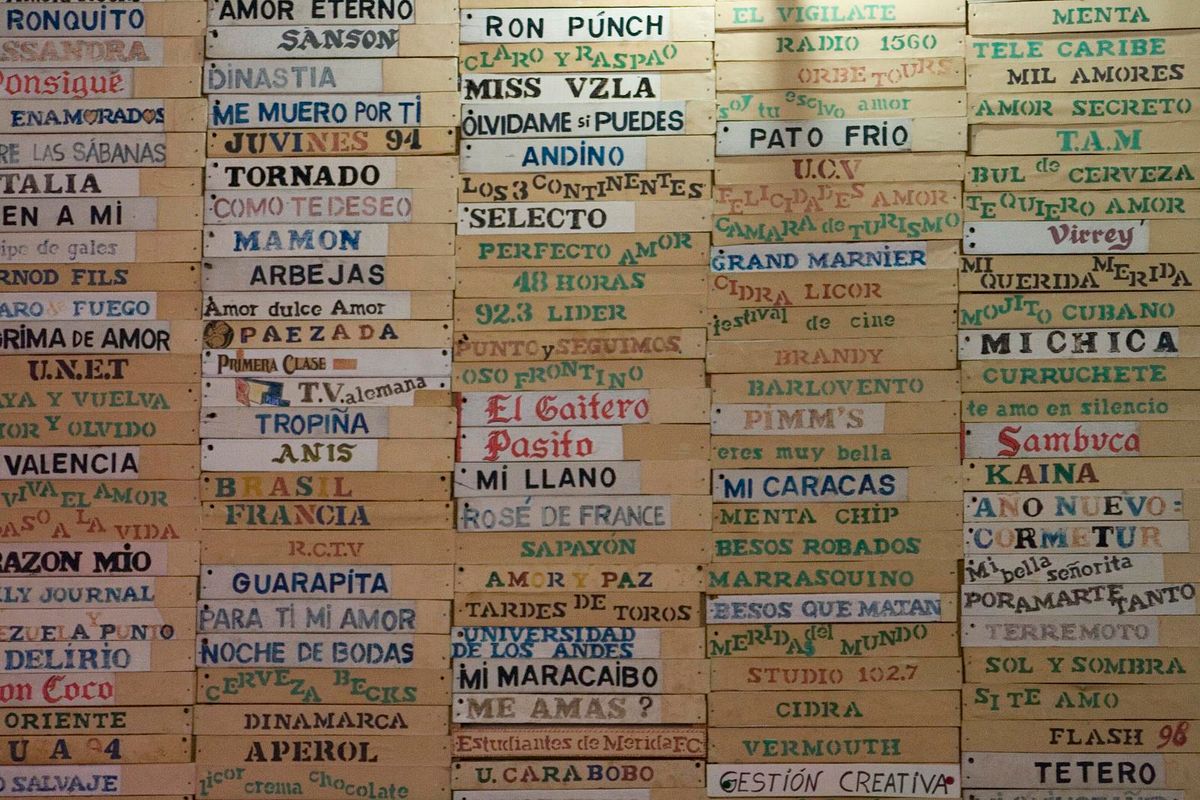 RONQUITO
ASSANDRA
Ponsigué
ENAMORADOS
RE LAS SÁBANAS
TALIA
EN A MI
ipe de gales
RNOD FILS
ARO Y FUEGO
GRIMA DE AMOR
U.N.E.T
AYA Y VUELVA
MOR Y OLVIDO
VALENCIA
VIVA EL AMOR
PASO A LA VIDA
RAZON MIO
ILY JOURNAL
EZUELA Y PUNTO
DELÍRIO
on Coco
ORIENTE
U A 94
O SALVAJE
AMOR ETERNO
SANSON
DINASTIA
ME MUERO POR TI
JUVINES 94
TORNADO
COMO TE DESEO
MAMON
ARBEJAS
Amor dulce Amor
PAEZADA
PRIMERA CLASE
T.V. alemana
TROPIÑA
ANIS
BRASIL
FRANCIA
R.C.T.V
GUARAPITA
PARA TI MI AMOR
NOCHE DE BODAS
CERVEZA BECKS
DINAMARCA
APEROL
licor crema chocolate
RON PÚNCH
CLARO Y RASPAO
MISS VZLA
OLVIDAME si PUEDES
ANDINO
LOS 3 CONTINENTES
SELECTO
PERFECTO AMOR
48 HORAS
92.3 LIDER
PUNTO y SEGUIMOS
OSO FRONTINO
El Gaitero
Pasito
MI LLANO
ROSÉ DE FRANCE
SAPAYÓN
AMOR Y PAZ
TARDES DE TOROS
UNIVERSIDAD DE LOS ANDES
MI MARACAIBO
ME AMAS ?
Estudiantes de Merida F.C.
U. CARABOBO
EL VIGILATE
RADIO 1560
ORBE TOURS
soy tu esclvo amor
PATO FRIO
U.C.V
FELICIDADES AMOR
CAMARA de TURISMO
GRAND MARNIER
CIDRA LICOR
festival de cine
BRANDY
BARLOVENTO
PIMM'S
eres muy bella
MI CARACAS
MENTA CHIP
BESOS ROBADOS
MARRASQUINO
BESOS QUE MATAN
MERIDA del MUNDO
STUDIO 102.7
CIDRA
VERMOUTH
GESTIÓN CREATIVA
MENTA
TELE CARIBE
MIL AMORES
AMOR SECRETO
T.A.M
BUL de CERVEZA
TE QUIERO AMOR
Virrey
MI QUERIDA MERIDA
MOJITO CUBANO
MI CHICA
CURRUCHETE
te amo en silencio
Sambuca
KAINA
AÑO NUEVO:
CORMETUR
Mi bella señorita
POR AMARTE TANTO
TERREMOTO
SOL Y SOMBRA
SI TE AMO
FLASH 98
TETERO